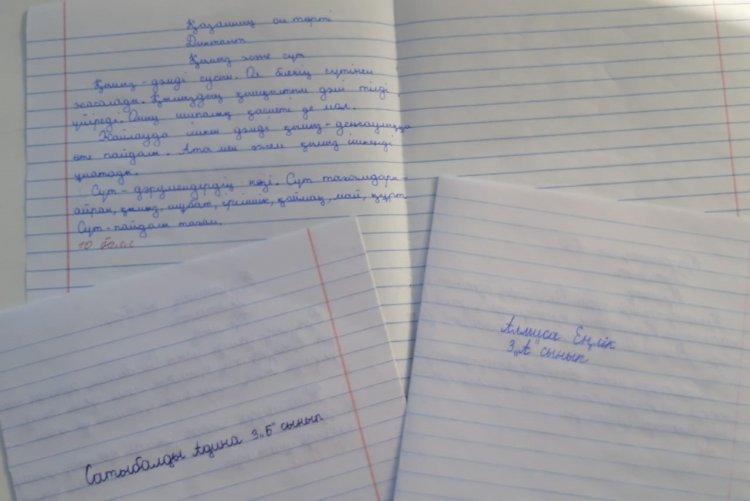 Қазанның он төрті
Диктант
Қымыз және сүт
Қымыз - дәмді сусын. Ол биенің сүтінен
жасалады. Қымыздың қышқылтым дәмі тілді
үйіреді. Оның шипалық қасиеті де мол.
Жайлауда ішкен дәмді қымыз - денсаулыққа
өте пайдалы. Ата мен әжем қымыз ішкенді
ұнатады.
Сүт - дәрумендердің көзі. Сүт тағамдары -
айран, қымыз, шұбат, ірімшік, қаймақ, май, құрт.
Сүт - пайдалы тағам.
10 балл
Алмиса Еңлік
3 „А" сынып
Сатыбалды Адина 3 „Б" сынып